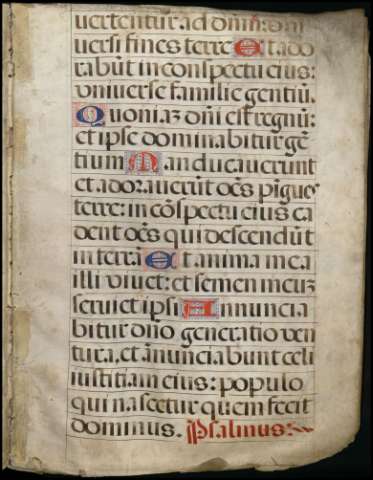 uertentur ad dom̄: ūni
uersi fines terre Et ado
rabūt in conspectu eius:
vniuerse familie gentiū.
Quoniaʒ dn̄i est regnū:
et ipse dominabitur gē
tium Manducauerunt
et adorauerūt oēs pīgues
terre: in cōspectu eius ca
dent oēs qui descendūt
in terrā Et anima mea
illi viuet: et semen meuʒ
seruiet ipsi Annuncia
bitur dn̄o generatio ven
tura, et ānunciabunt celi
iustitiam eius: populo
qui nascetur quem fecit
dominus. Psalmus: